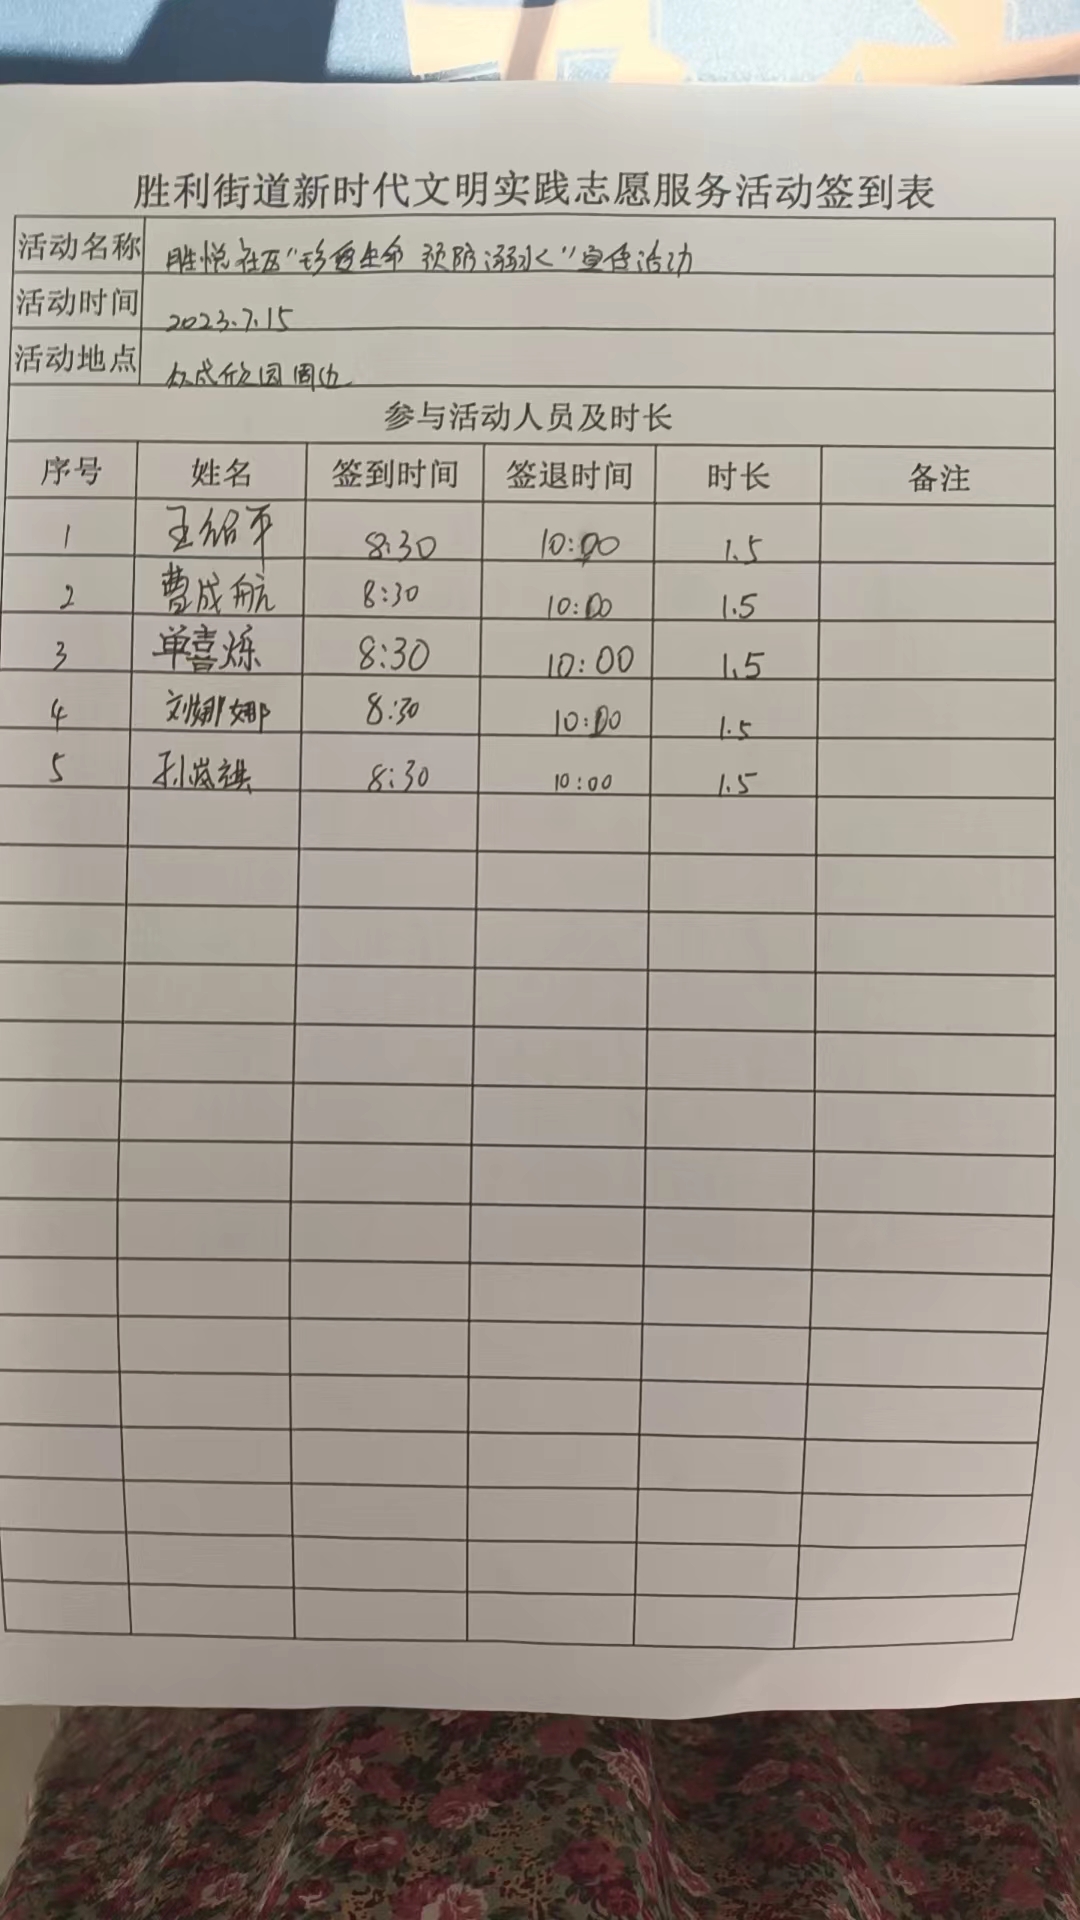 胜利街道新时代文明实践志愿服务活动签到表
活动名称 胜悦社区“珍爱生命 预防溺水”宣传活动
活动时间 2023.7.15
活动地点 众成欣园周边
参与活动人员及时长
序号 姓名 签到时间 签退时间 时长 备注
1 王绍平 8:30 10:00 1.5
2 曹成航 8:30 10:00 1.5
3 单喜烁 8:30 10:00 1.5
4 刘娜娜 8:30 10:00 1.5
5 孙岚祺 8:30 10:00 1.5